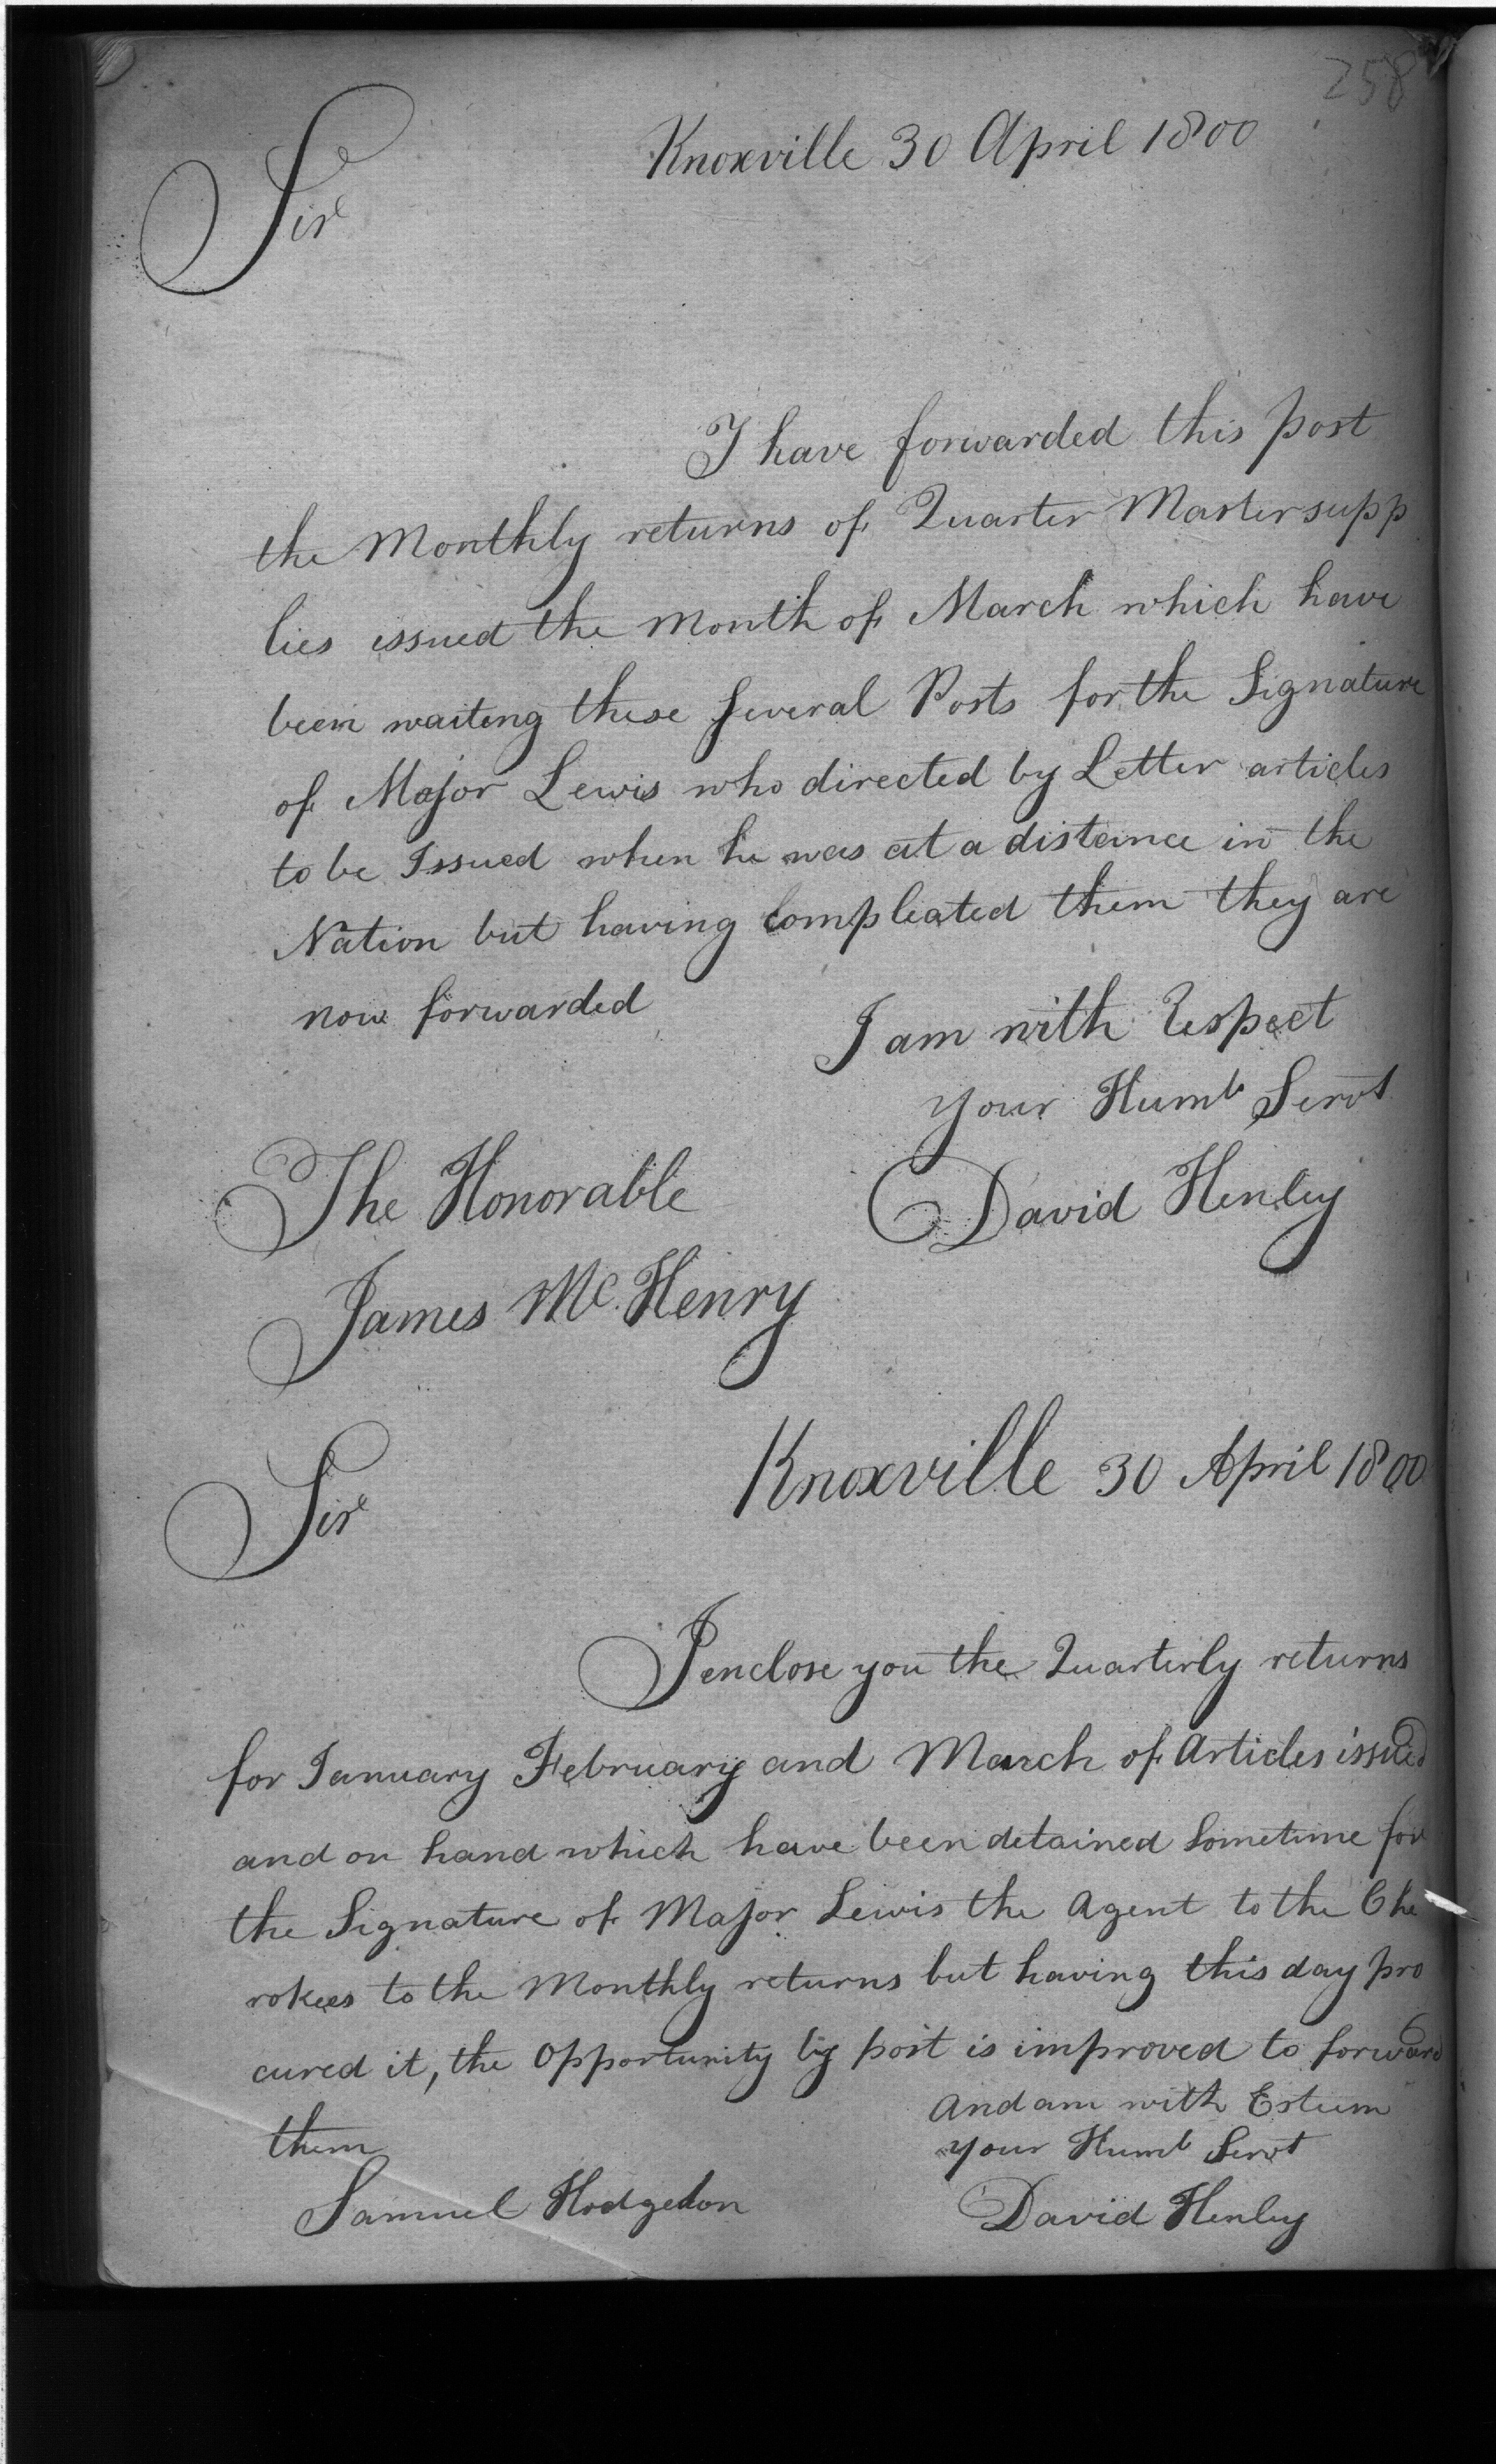 258
Knoxville 30 April 1800
Sir
I have forwarded this post
the Monthly returns of Quarter Master supp
lies issued the Month of March which have
been waiting these several Posts for the Signature
of Major Lewis who directed by Letter articles
to be Issued when he was at a distance in the
Nation but having Compleated them they are
now forwarded
I am with Respect
your Humb Servt
The Honorable
David Henley
James McHenry
Knoxville 30 April 1800
Sir
I enclose you the Quarterly returns
for January February and March of Articles issued
and on hand which have been detained Sometime for
the Signature of Major Lewis the Agent to the Che
rokees to the Monthly returns but having this day pro
cured it, the Opportunity by post is improved to forward
them
and am with Esteem
your Humb Servt
Samuel Hodgdon
David Henley